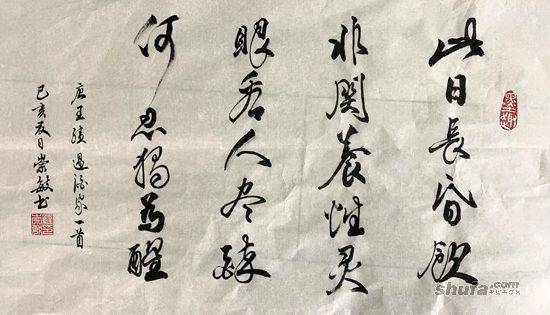 此日長昏飲
非関養性灵
眼看人尽醉
何忍獨为醒
唐王績過酒家一首
己亥夏日崇敏书
墨趣
shufa.com